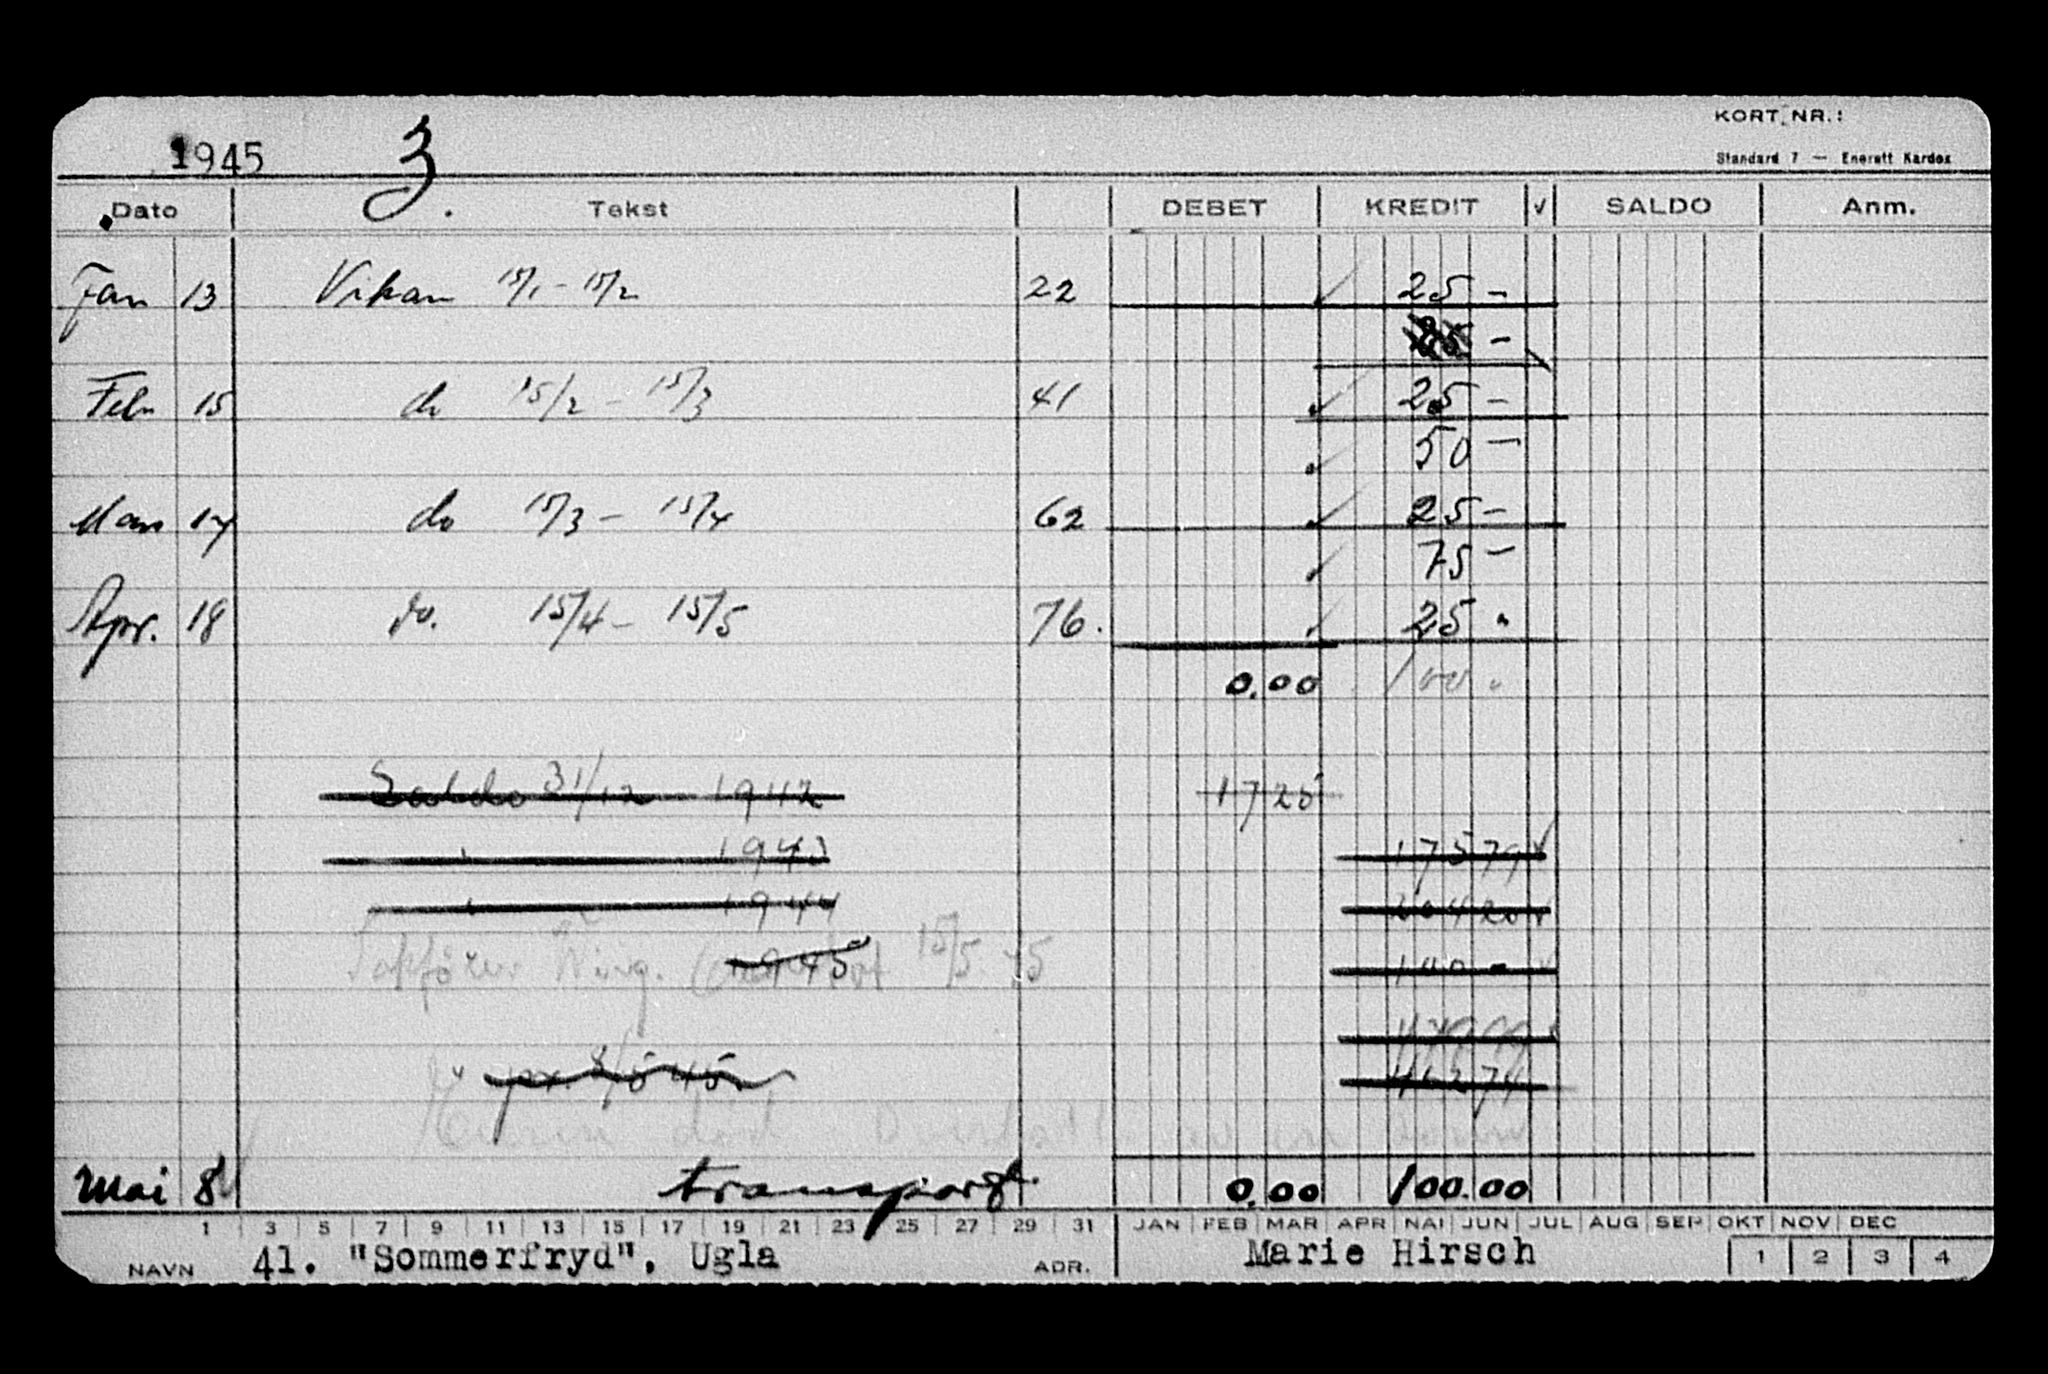 KORT NR.:
1945 3.
Standard 7 — Enerett Kardex
Dato Tekst DEBET KREDIT √ SALDO Anm.
Jan 13 Vikan 15/1 - 15/2 22 25 -
Feb 15 do 15/2 - 15/3 41 25 -
50 -
Mars 14 do 15/3 - 15/4 62 25 -
75 -
Apr. 18 do. 15/4 - 15/5 76. 25 "
0.00 100 "
Saldo 31/12 1942 1725
" 1943 17579
" 1944 20420
1945 15/5. 45 100 -
pr. 8/5 45 46274
Mai 8 transport 0.00 100.00
1 3 5 7 9 11 13 15 17 19 21 23 25 27 29 31 JAN FEB MAR APR MAI JUN JUL AUG SEP OKT NOV DEC
NAVN 41. "Sommerfryd", Ugla ADR. Marie Hirsch 1 2 3 4